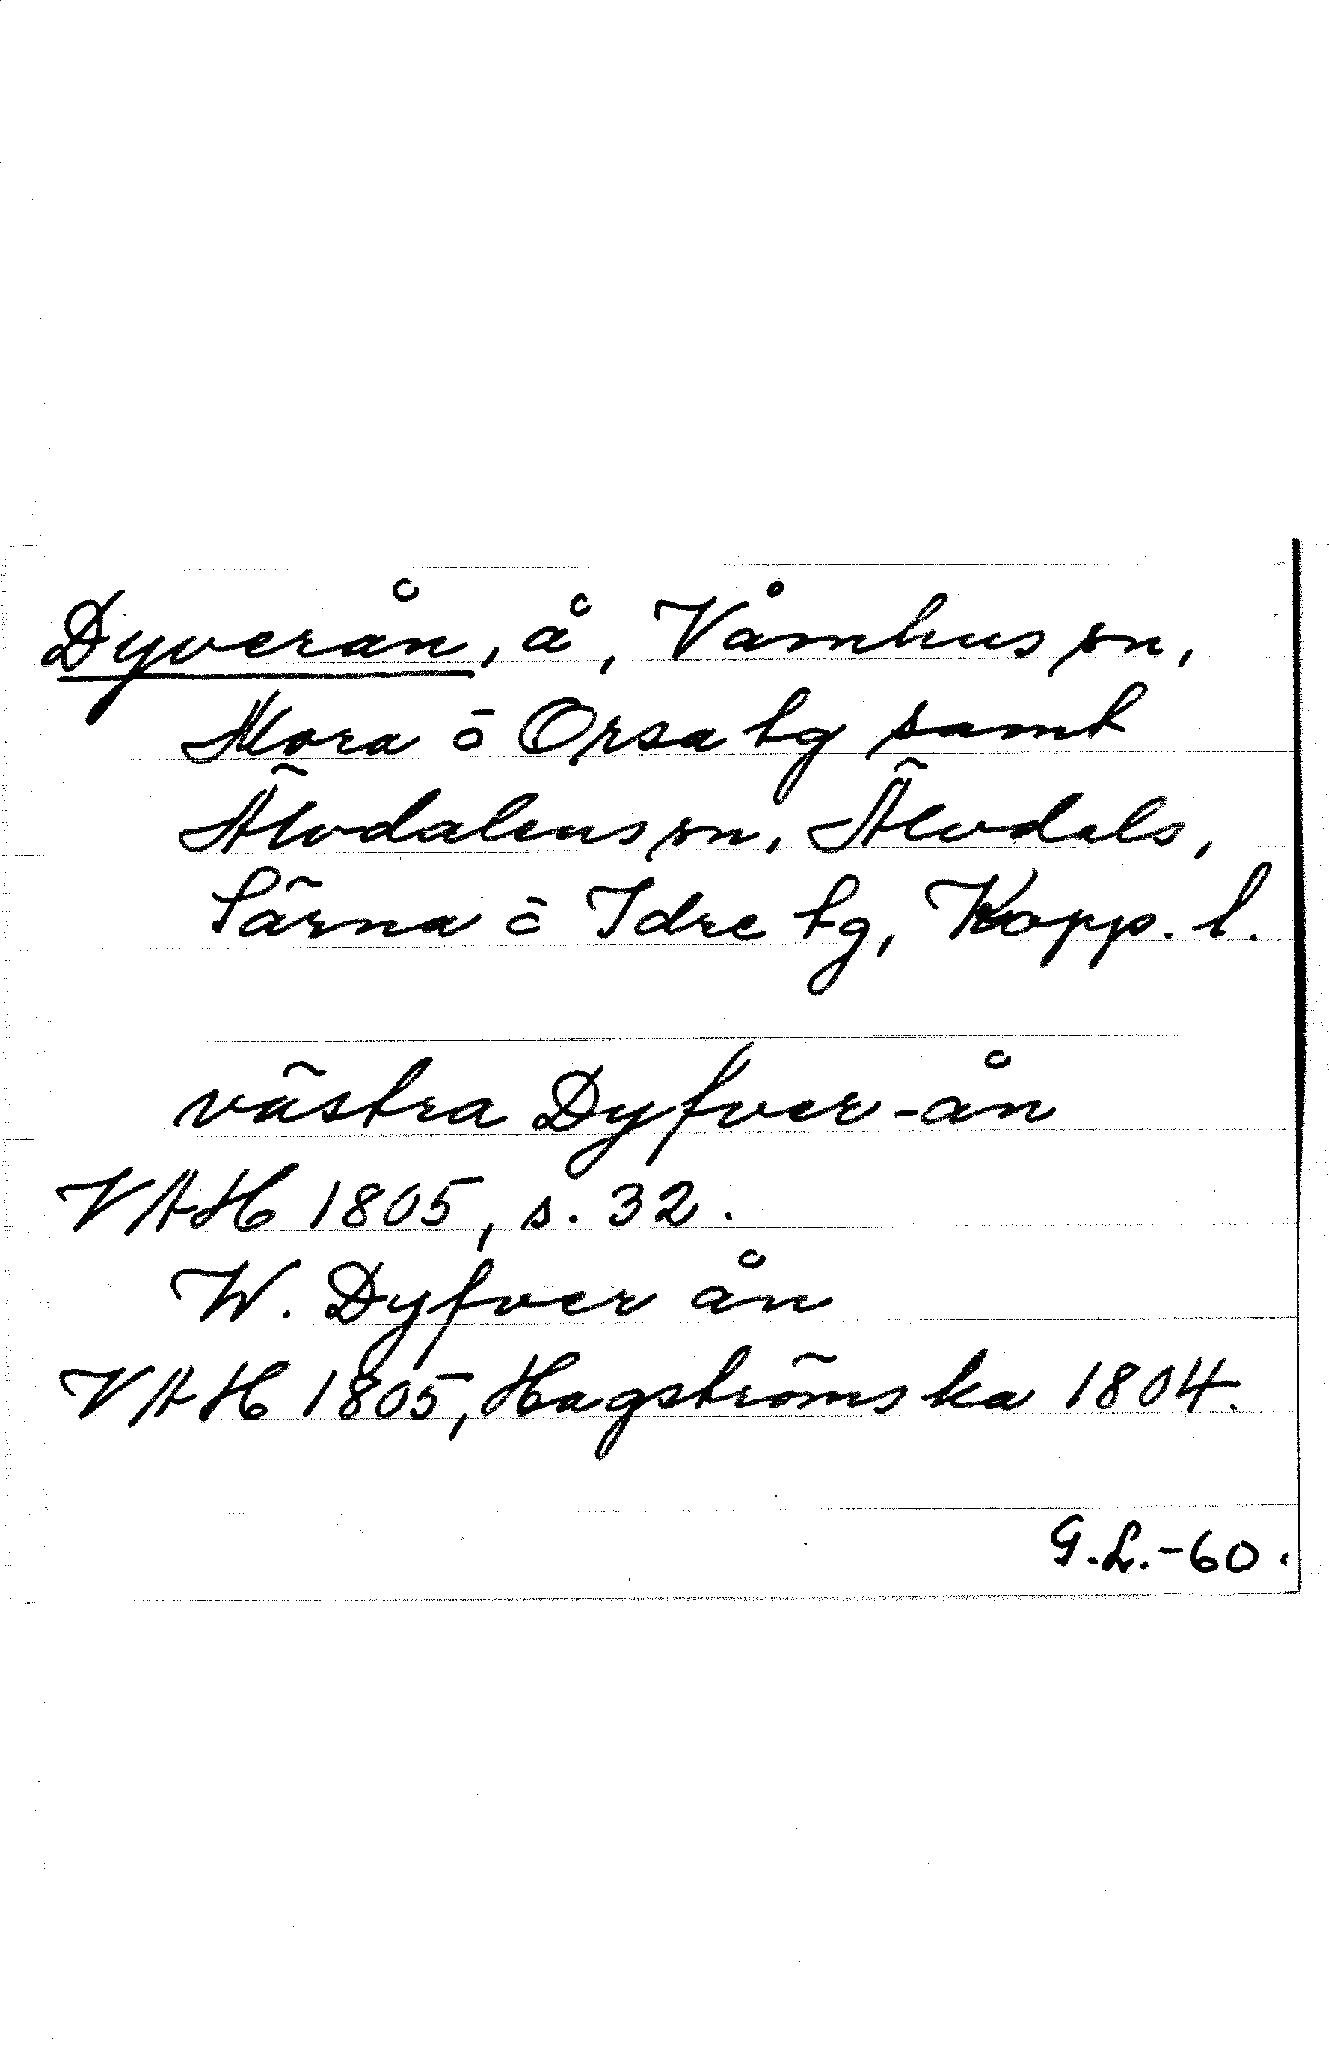 Dyverån, å, Våmhus sn,
Mora ö Orsa tg samt
Älvdalens sn, Älvdals,
Särna ö Idre tg, Kopp. l.
västra Dyfver-ån
VAH 1805, s. 32.
W. Dyfver ån
VAH 1805, Hagströmska 1804.
G.L.-60.